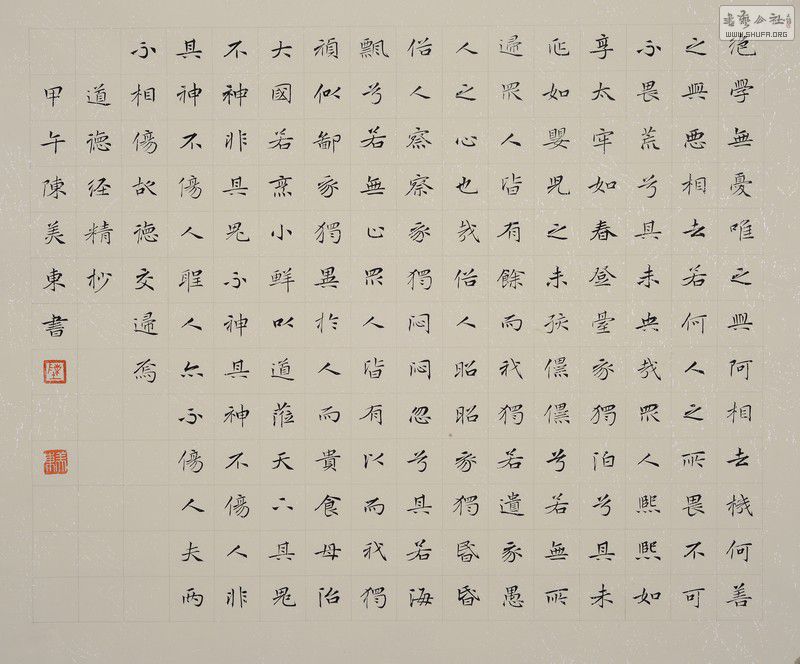 絕學無憂唯之與阿相去機何善
之與惡相去若何人之所畏不可
不畏荒兮其未央哉眾人熙熙如
享太牢如春登臺我獨泊兮其未
兆如嬰兒之未孩儽儽兮若無所
歸眾人皆有餘而我獨若遺我愚
人之心也哉俗人昭昭我獨昏昏
俗人察察我獨悶悶忽兮其若海
飄兮若無止眾人皆有以而我獨
頑似鄙我獨異於人而貴食母治
大國若烹小鮮以道蒞天下其鬼
不神非其鬼不神其神不傷人非
其神不傷人聖人亦不傷人夫兩
不相傷故德交歸焉
道德經精抄
甲午陳美東書
美東
書藝公社
WWW.SHUFA.ORG